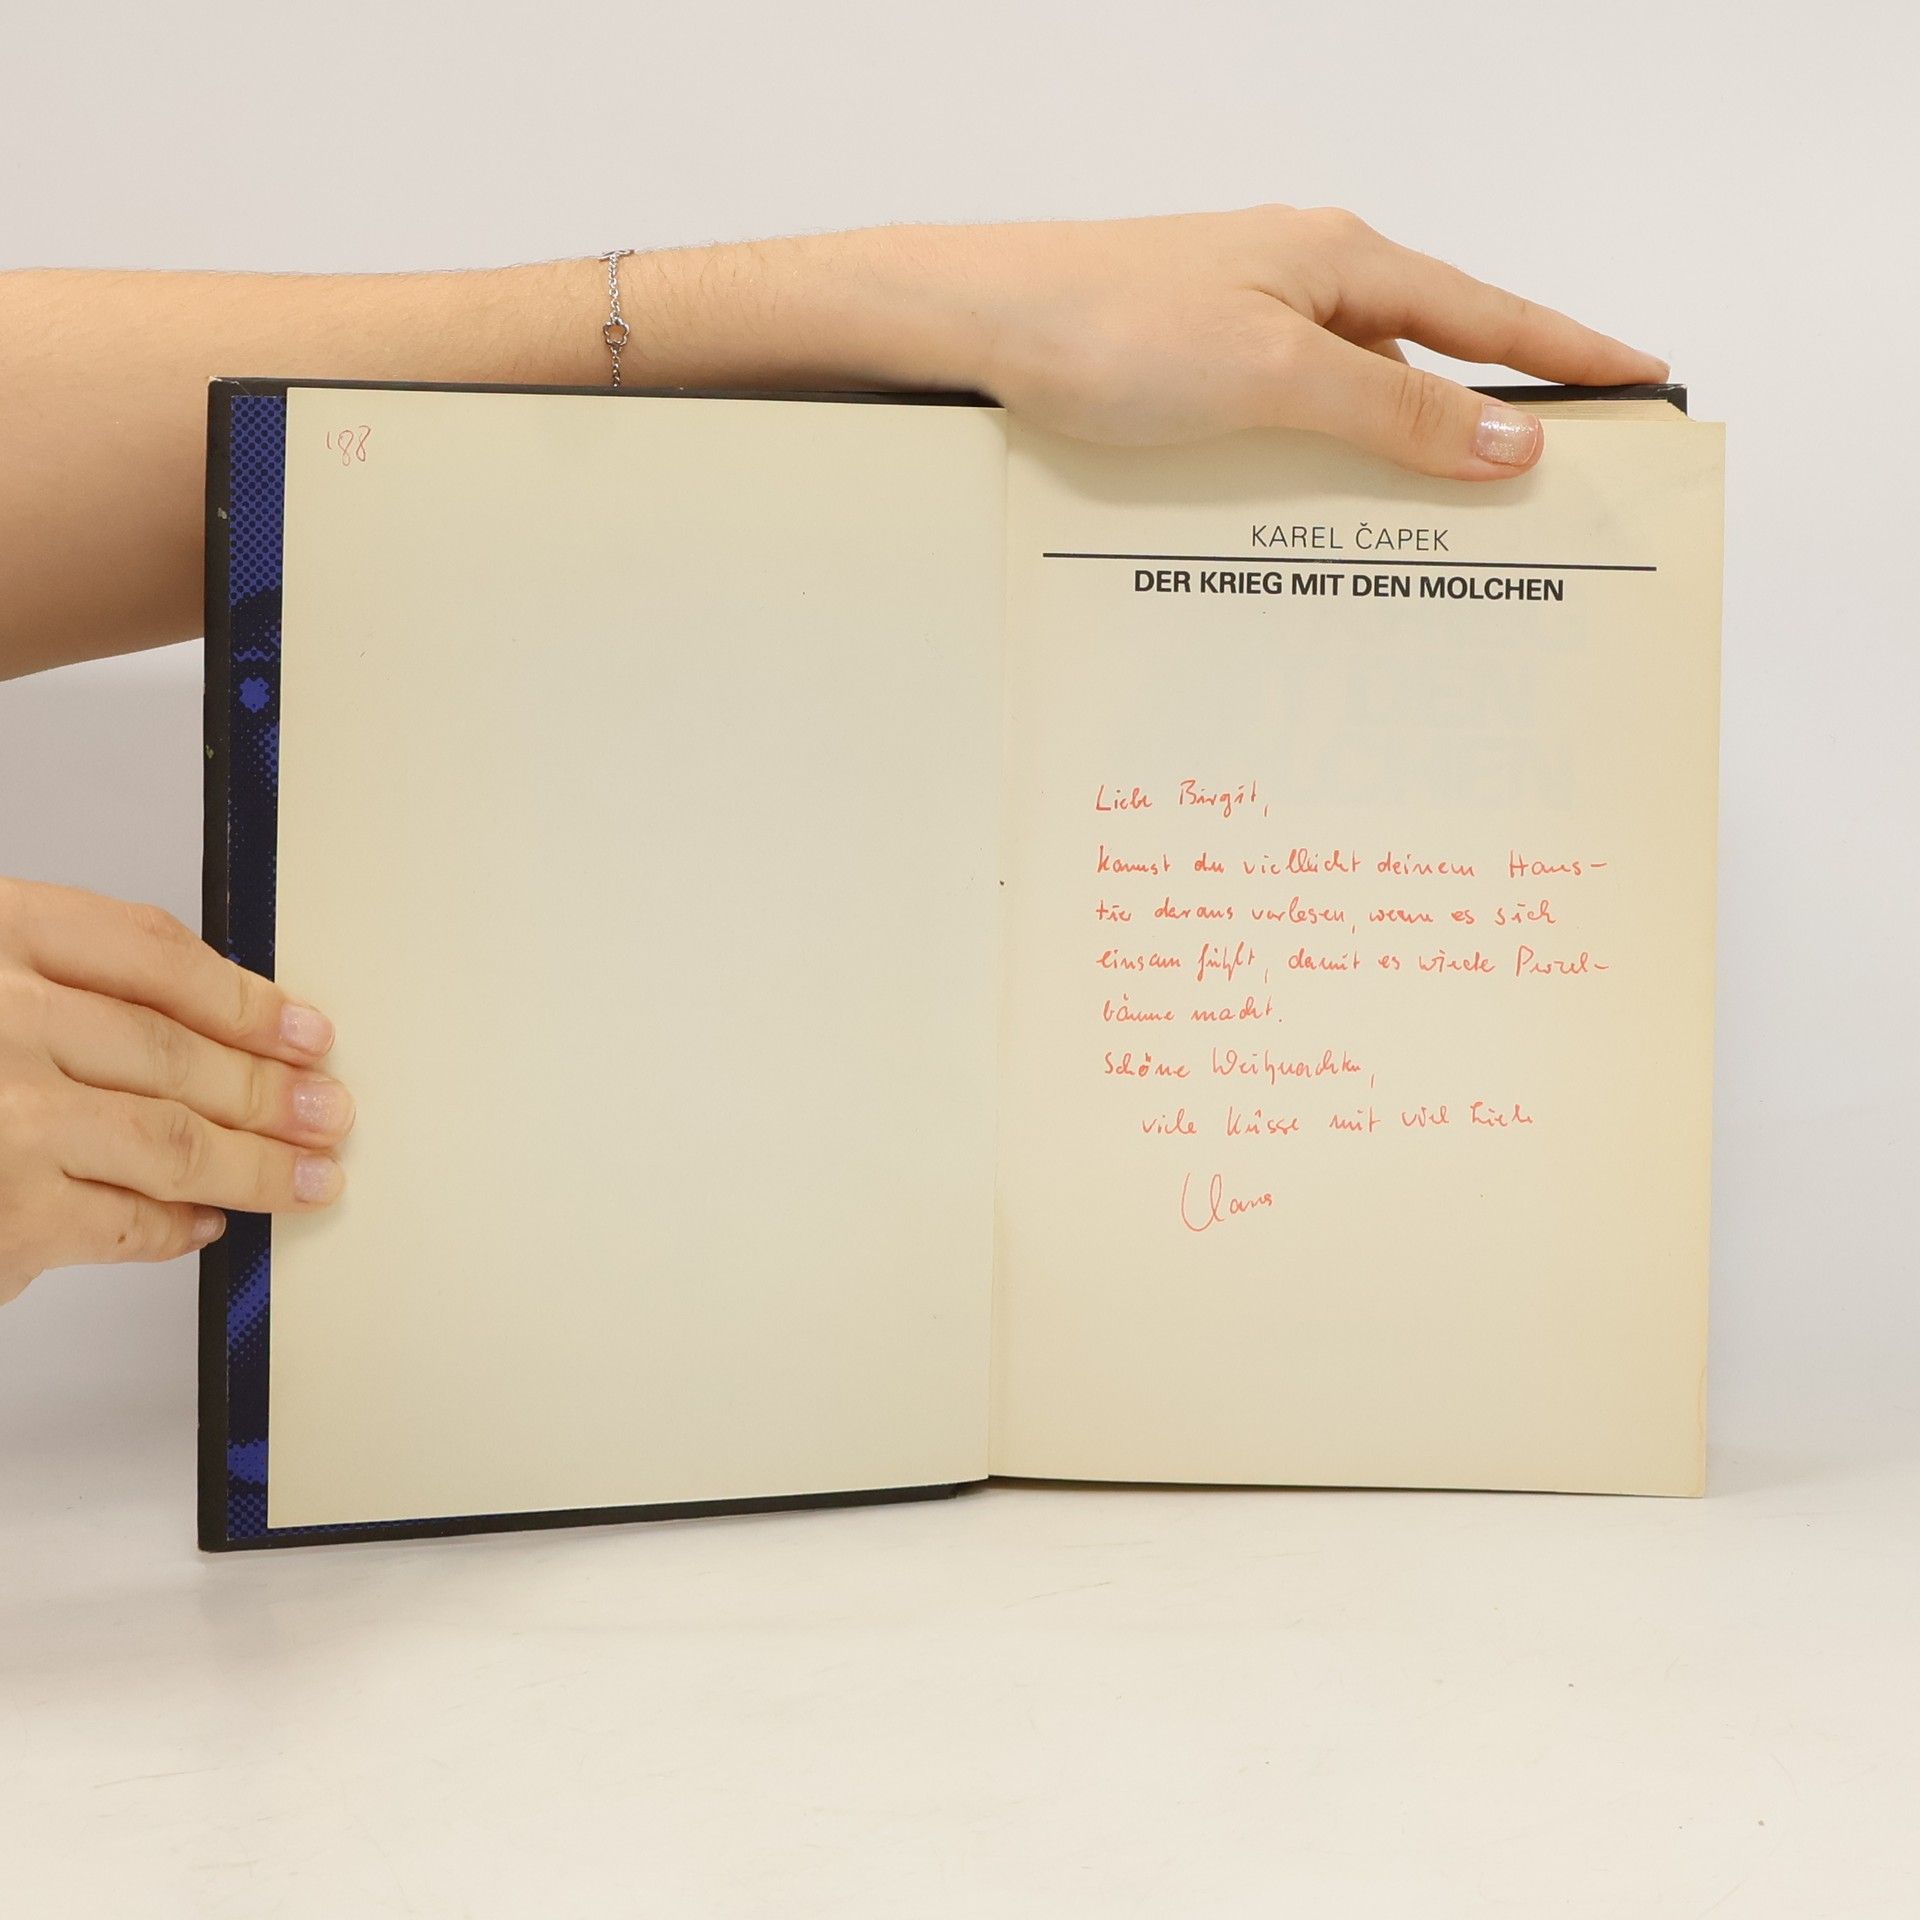 '88
KAREL ČAPEK
DER KRIEG MIT DEN MOLCHEN
Liebe Birgit,
kannst du vielleicht deinem Haus-
tier daraus vorlesen, wenn es sich
einsam fühlt, damit es wieder Purzel-
bäume macht.
Schöne Weihnachten,
viele Küsse mit viel Liebe
Claus